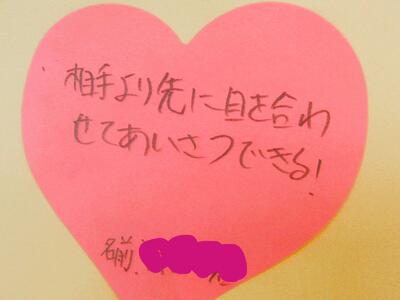 相手より先に目を合わ
せてあいさつできる!
名前